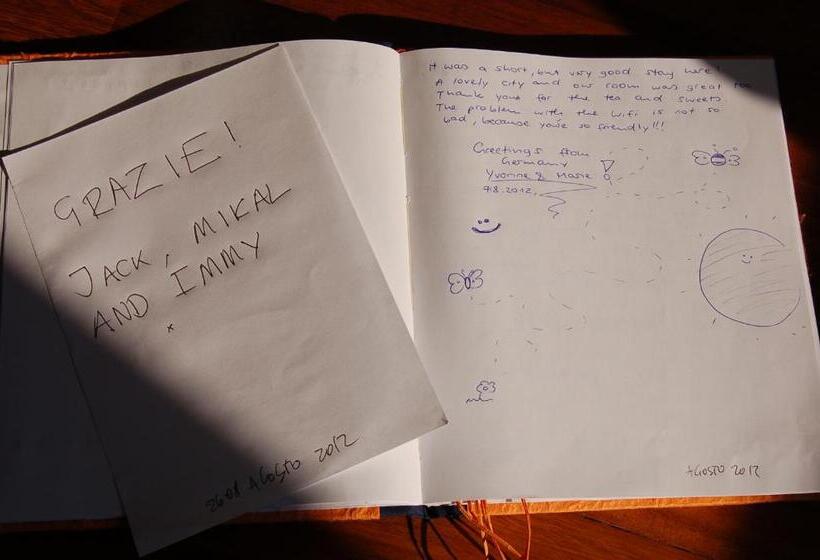 GRAZIE!
JACK, MIKAL
AND IMMY
x
AGOSTO 2012
It was a short, but very good stay here!
A lovely city and our room was great too.
Thank your for the tea and sweets.
The problem with the wifi is not so
bad, because you're so friendly!!!
Greetings from
Germany
Yvonne & Marie
9.8.2012
AGOSTO 2012